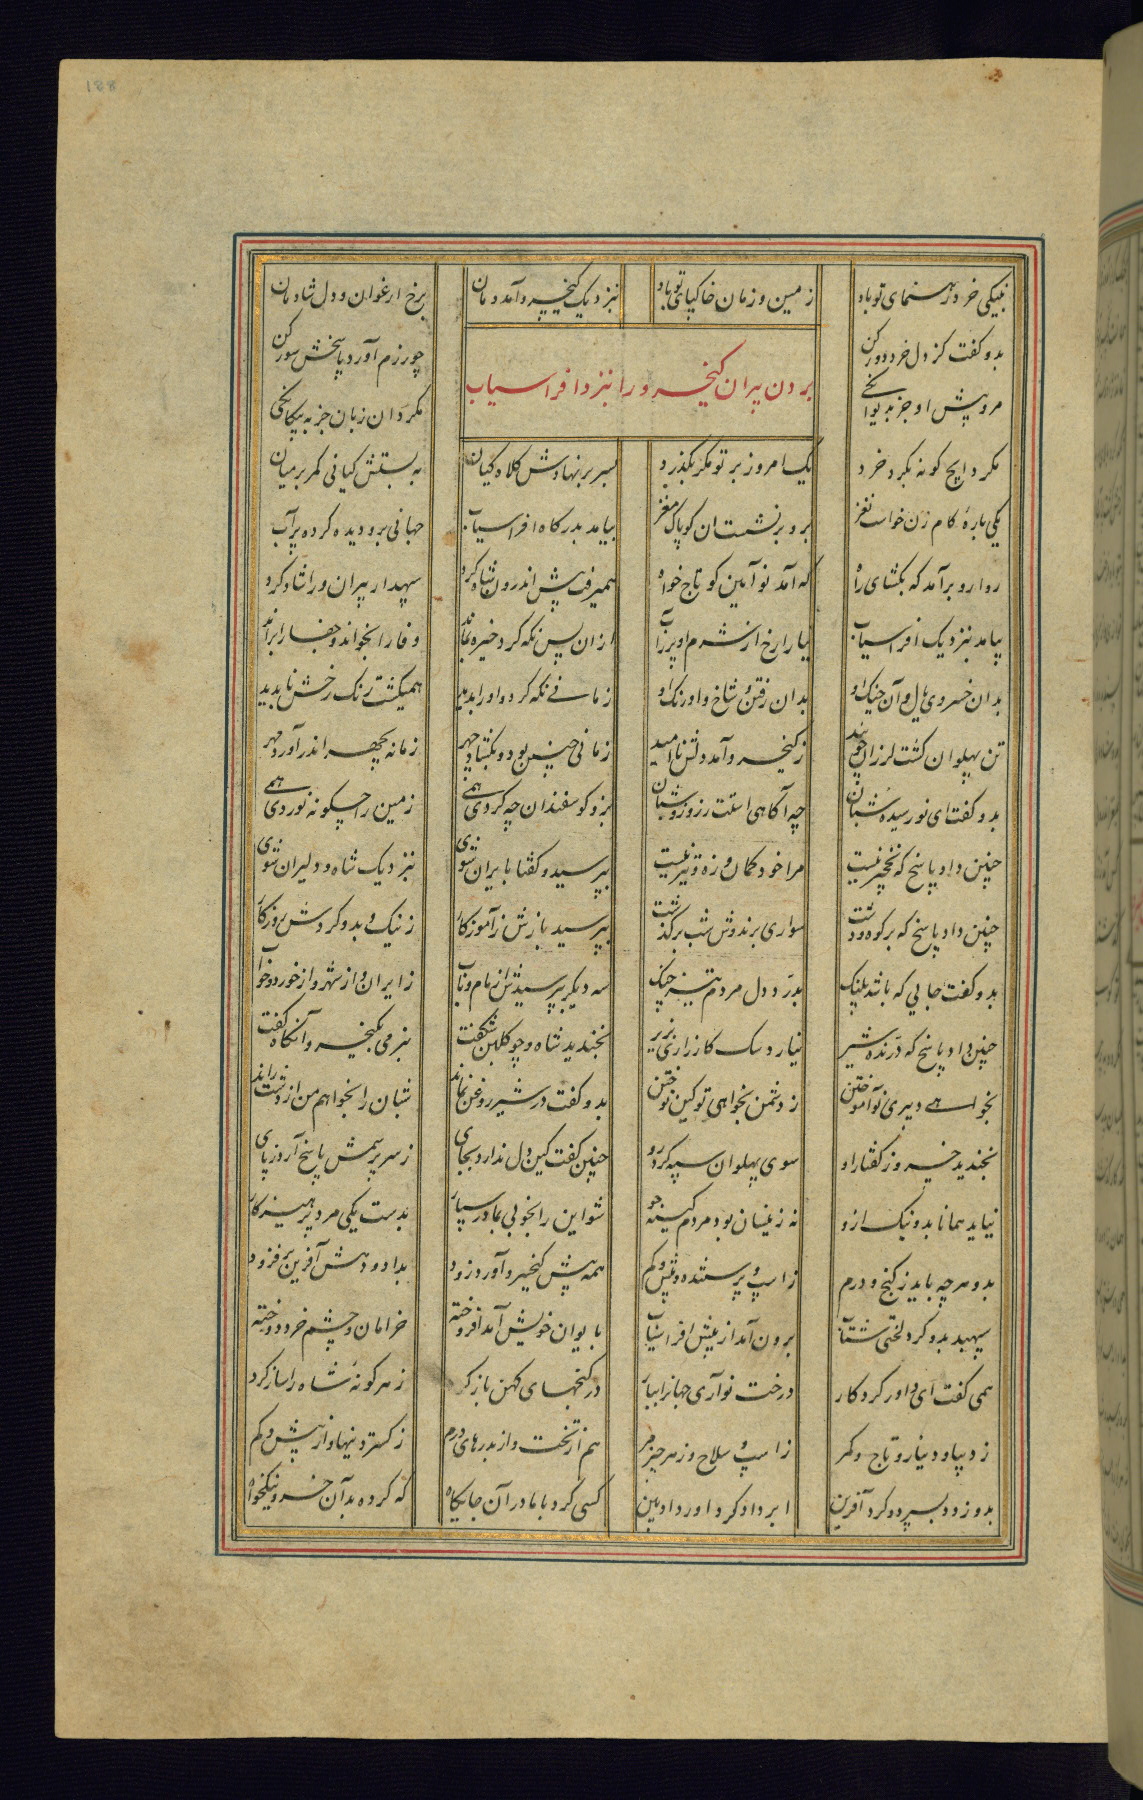 بنیکی خرد رهنمای تو باد زمین و زمان خاکپای تو باد بنزدیک کیخسرو آمد دمان برخ ارغوان و دل شادمان
بدو گفت کز دل خرد دور کن چو رزم آورد پاسخش سور کن
مرو پیش او جز بدیوانگی مگردان زبان جز به بیگانگی
بردن پیران کیخسرو را بنزد افراسیاب
مگرد ایچ گونه بگرد خرد یک امروز بر تو مگر بگذرد بسر بر نهادش کلاه کیان به بستش کیانی کمر بر میان
یکی بارهٔ گام زن خواست نغز برو بر نشست ان گو پاک مغز بیامد بدرگاه افراسیاب جهانی برو دیده کرده پر آب
روارو برآمد که بگشای راه که آمد نو آیین گو تاج خواه همیرفت پیش اندرون شاه گرد سپهدار پیران ورا شاد کرد
بیامد بنزدیک افراسیاب نیا را رخ از شرم او پر ز آب ازان پس نگه کرد خیره بماند وفا را بخواند و جفا را براند
بدان خسروی یال و آن چنگ او بدان رفتن و شاخ و اورنگ او زمانی نگه کرد و او را بدید همیگشت رنگ رخش ناپدید
تن پهلوان گشت لرزان چو بید ز کیخسرو آمد دلش نا امید زمانی چنین بود و بگشاد چهر زمانه بچهر اندر آورد مهر
بدو گفت ای نو رسیده شبان چه آگاهی استت ز روز و شبان بز و گوسفندان چه کردی همی زمین را چگونه نوردی همی
چنین داد پاسخ که نخچیر نیست مرا خود کمان و زه و تیر نیست بپرسید و گفتا بایران شوی بنزدیک شاه و دلیران شوی
چنین داد پاسخ که بر کوه و دشت سواری پرندوش شب بر گذشت بپرسید بازش ز آموزگار ز نیک و بد و گردش روزگار
بدو گفت جایی که باشد پلنگ بدرد دل مردم تیز چنگ سه دیگر بپرسیدش از مام و باب ز ایران و از شهر و از خورد و خواب
چنین داد پاسخ که درنده شیر نیارد سگ کارزاری بزیر بخندید شاه و چو گلبن شگفت بنرمی بکیخسرو آنگاه گفت
نخواهی دبیری تو آموختن ز دشمن نخواهی تو کین توختن بدو گفت در شیر روغن نماند شبان را بخواهم من از دشت راند
بخندید خسرو ز گفتار او سوی پهلوان سپه کرد رو چنین گفت کین دل ندارد بجای ز سر پرسمش پاسخ آرد ز پای
نیاید همانا بد و نیک ازو نه زینسان بود مردم کینه جو شو این را بخوبی بمادر سپار بدست یکی مرد پرهیزکار
بدو هر چه باید ز گنج و درم ز اسپ و پرستنده و بیش و کم همه پیش کیخسرو آورد زود بداد و دهش آفرین بر فزود
سپهبد بدو کرد لختی شتاب برون آمد از پیش افراسیاب بایوان خویش آمد افروخته خرامان و چشم خرد دوخته
همی گفت ای داور کردگار درخت نو آری جهانرا ببار در گنجهای کهن باز کرد ز هر گونهٔ شاه را ساز کرد
ز دیبا و دینار و تاج و کمر ز اسپ و سلاح و ز هر چیز مر هم از تخت و از بدرهای درم ز گستردنیها و از بیش و کم
بدو زود بسپرد و کرد آفرین ابر دادگر داور داد بین گسی کرد با مادر آن جایگاه که کرده بد آن خسرو نیکخواه